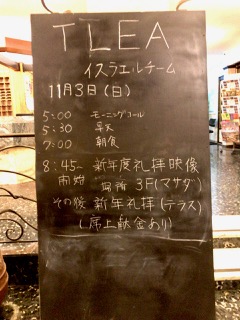 TLEA
イスラエルチーム
11月3日(日)
5:00 モーニングコール
5:30 早天
7:00 朝食
8:45- 新年度礼拝映像
開始 場所 3F(マサダ)
その後 新年礼拝(テラス)
(席上献金あり)